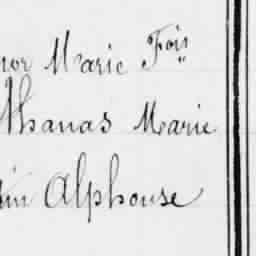 nor Marie Fois
Athanas Marie
in Alphonse